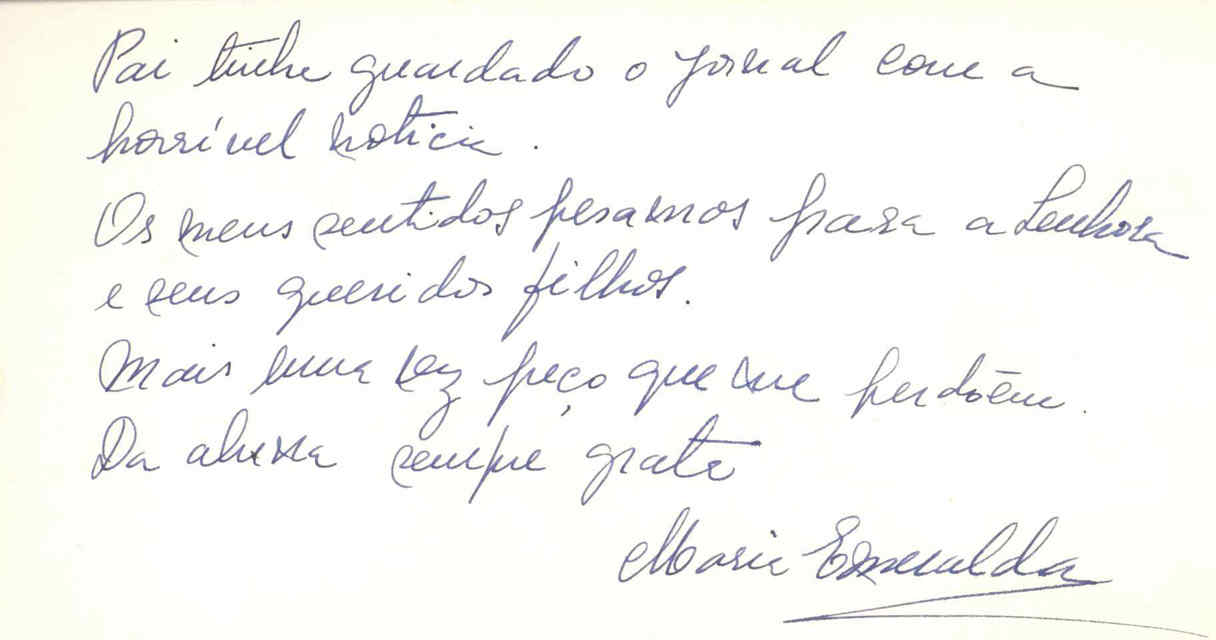 Pai tinha guardado o jornal com a
horrível noticia.
Os meus sentidos pesamos para a Senhora
e seus queridos filhos.
Mais uma vez peço que me perdõem.
Da aluna sempre grata
Maria Esmeralda